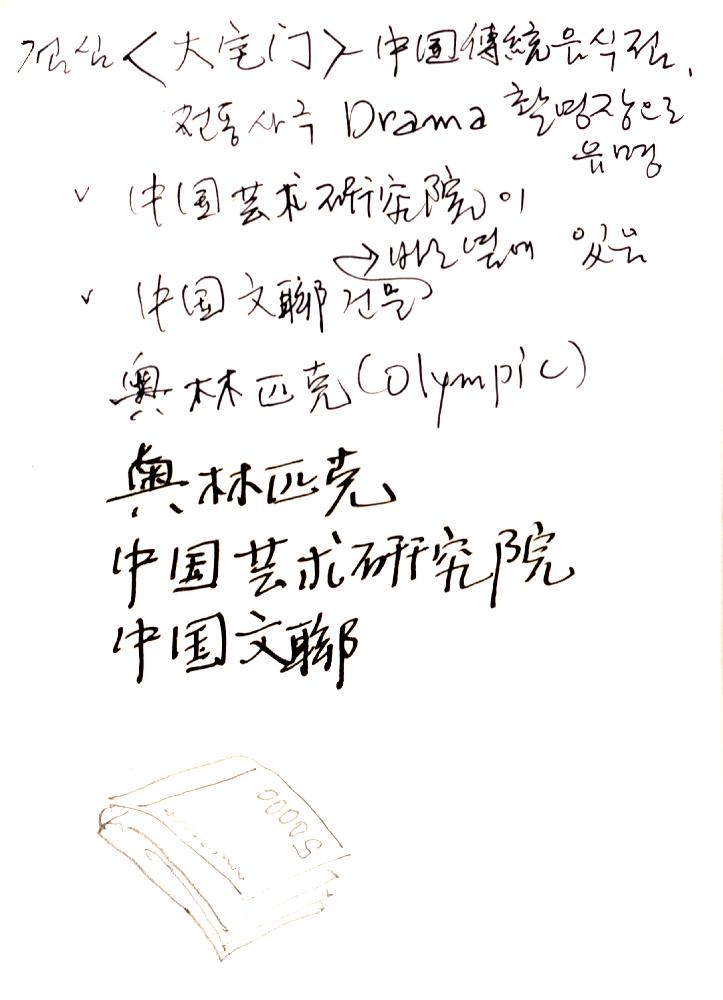 점심 <大宅门> 中国傳統음식점,
전통사극 Drama 촬영장으로
유명
✓ 中国芸术研究院이
→ 바로 옆에 있음
✓ 中国文聯 건물
奧林匹克(Olympic)
奧林匹克
中国芸术研究院
中国文聯
50000